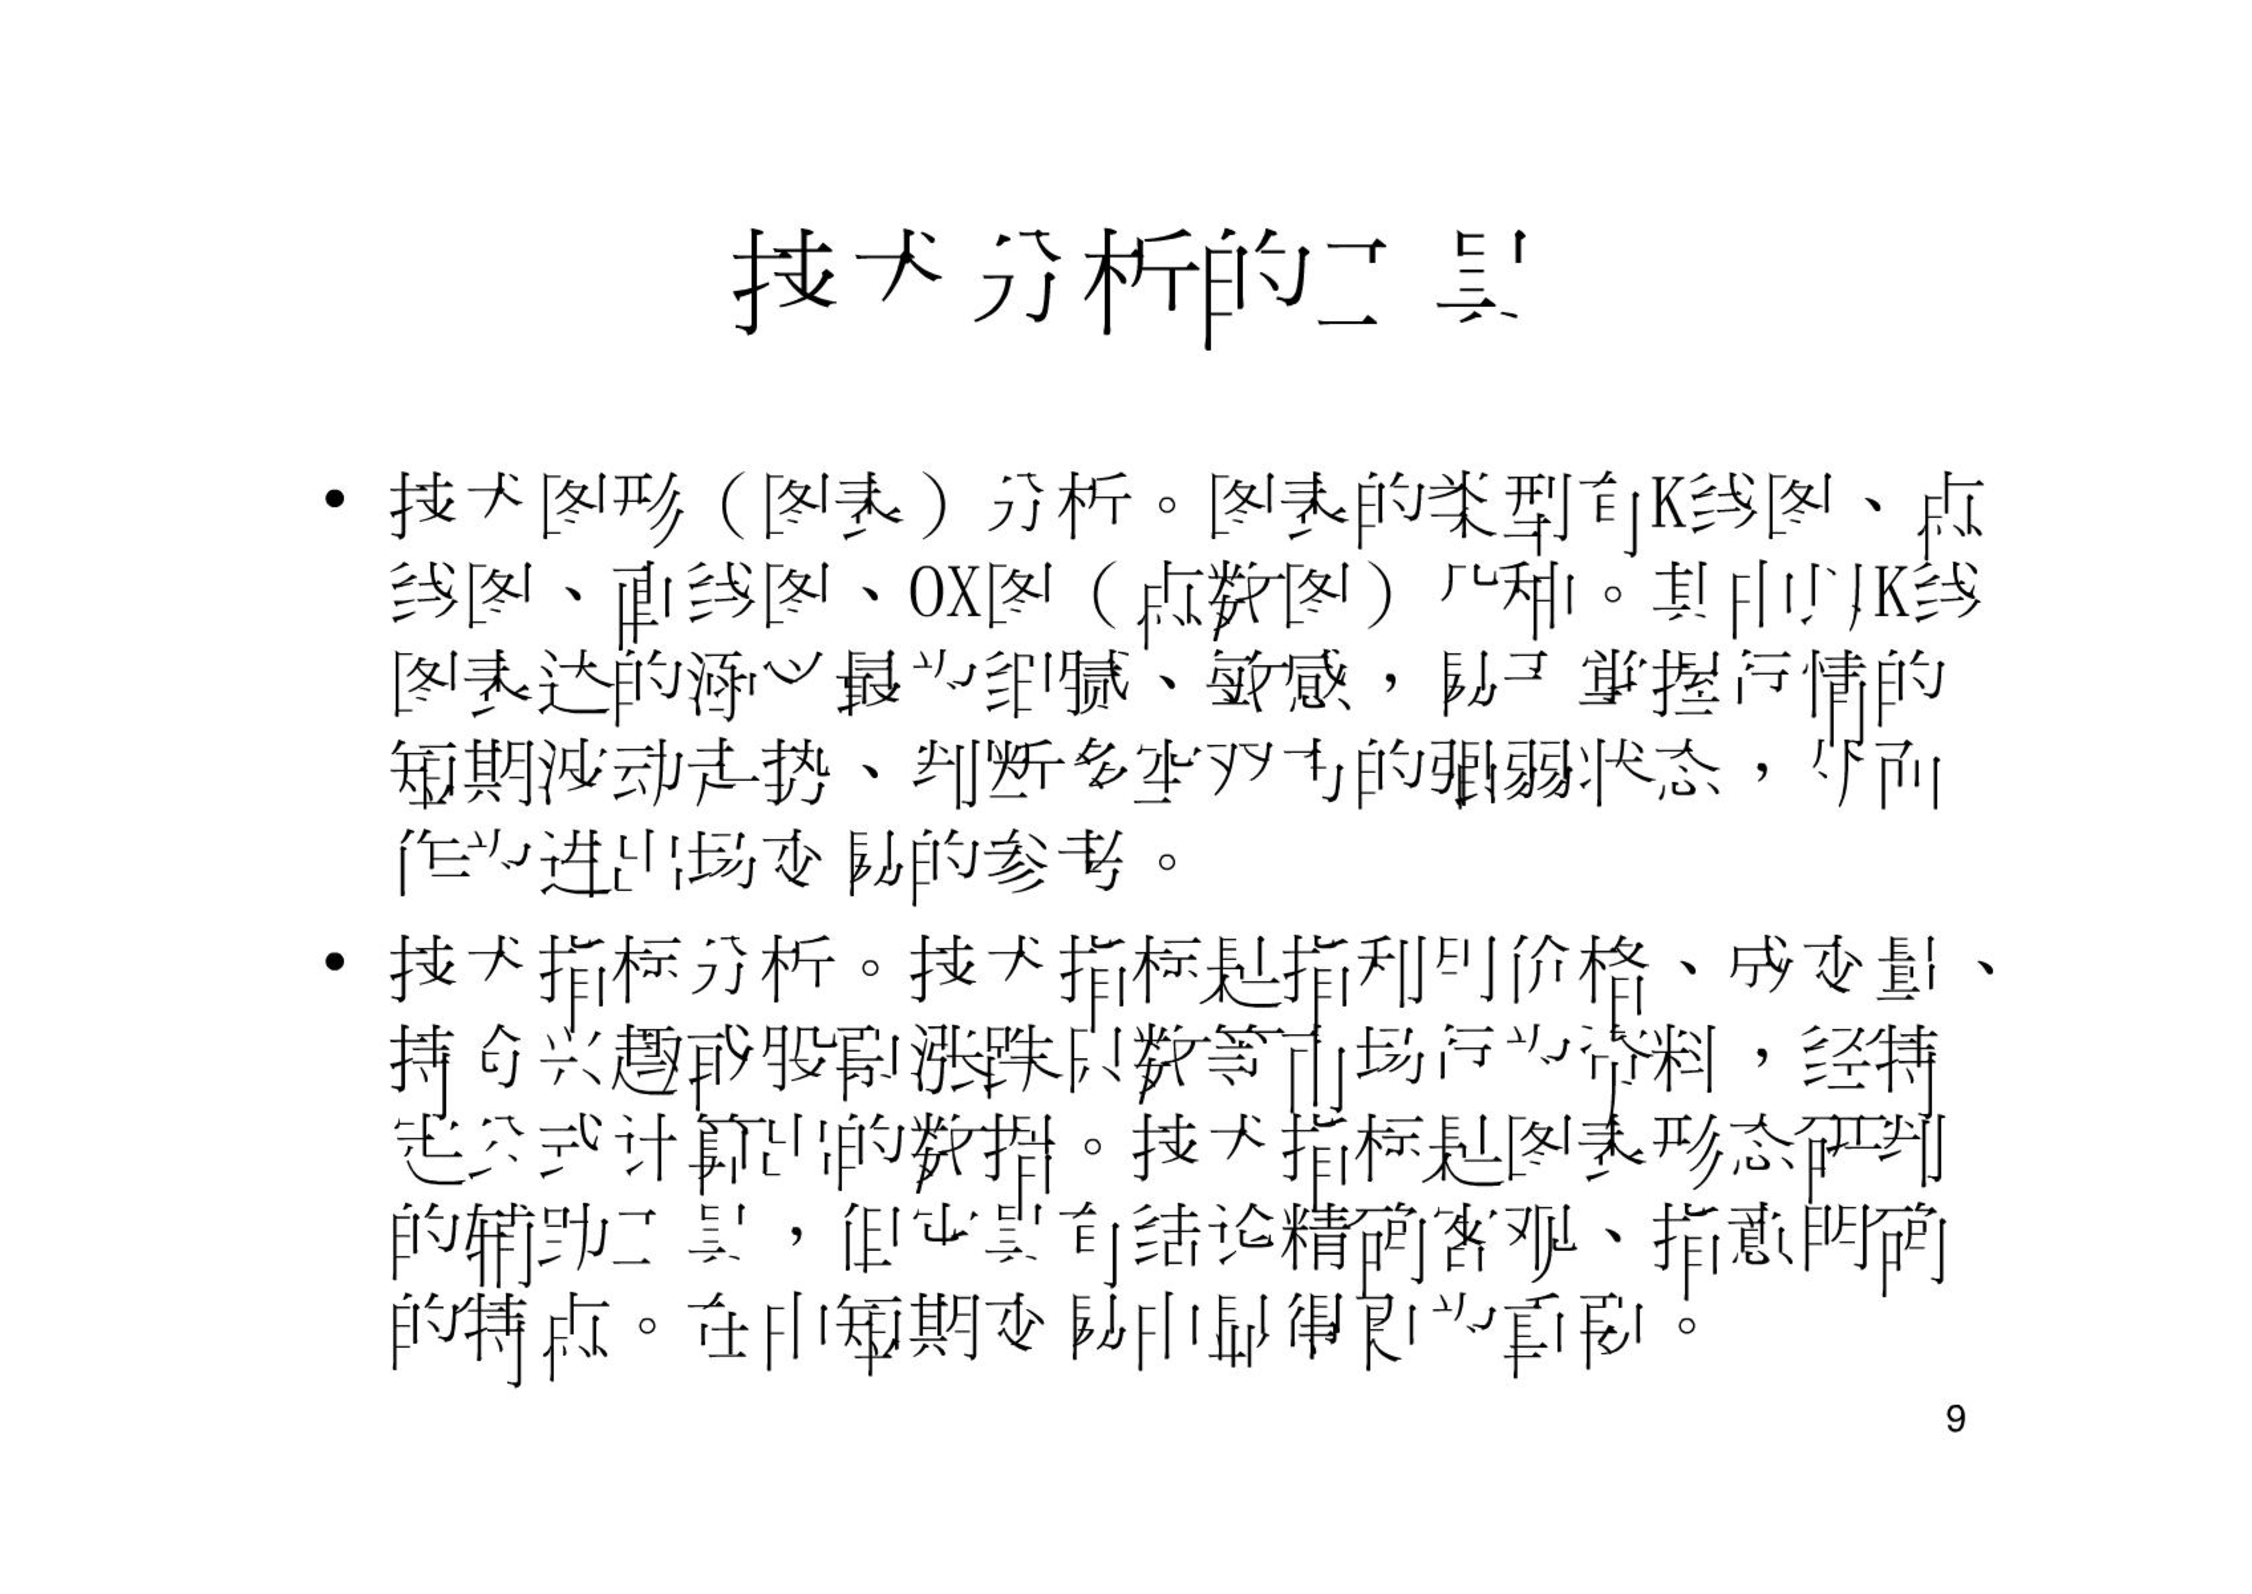 技术分析的工具
• 技术图形（图表）分析。图表的类型有K线图、点
线图、直线图、OX图（点数图）几种。其中以K线
图表达的涵义最为细腻、敏感，易于掌握行情的
短期波动走势、判断多空双方的强弱状态，从而
作为进出场交易的参考。
• 技术指标分析。技术指标是指利用价格、成交量、
持仓兴趣或股票涨跌只数等市场行为资料，经特
定公式计算出的数据。技术指标是图表形态研判
的辅助工具，但它具有结论精确客观、指意明确
的特点。在中短期交易中显得更为重要。
9